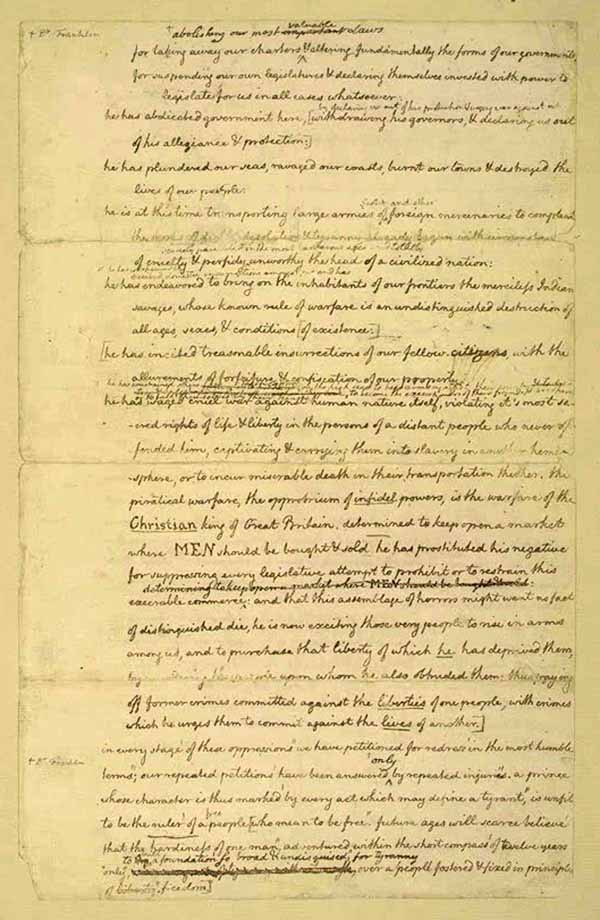 + Dr. Franklin
+ abolishing our most important valuable laws
for taking away our charters & altering fundamentally the forms of our governments,
for suspending our own legislatures & declaring themselves invested with power to
legislate for us in all cases whatsoever:
by declaring us out of his protection & waging war against us
he has abdicated government here, [withdrawing his governors, & declaring us out
of his allegiance & protection:]
he has plundered our seas, ravaged our coasts, burnt our towns & destroyed the
lives of our people:
Scotch and other
he is at this time transporting large armies of foreign mercenaries to compleat
the works of death, desolation & tyranny already begun with circumstances
scarcely paralleled in the most barbarous ages totally
of cruelty & perfidy unworthy the head of a civilized nation:
excited domestic insurrections amongst us and has
he has endeavored to bring on the inhabitants of our frontiers the merciless Indian
savages, whose known rule of warfare is an undistinguished destruction of
all ages, sexes, & conditions [of existence:]
[he has incited treasonable insurrections of our fellow citizens, with the
allurements of forfeiture & confiscation of our property:
he has waged cruel war against human nature itself, violating it's most sa-
-cred rights of life & liberty in the persons of a distant people who never of-
fended him, captivating & carrying them into slavery in another hemi-
-sphere, or to incur miserable death in their transportation thither. this
piratical warfare, the opprobrium of infidel powers, is the warfare of the
Christian king of Great Britain. determined to keep open a market
where MEN should be bought & sold he has prostituted his negative
for suppressing every legislative attempt to prohibit or to restrain this
determining to keep open a market where MEN should be bought & sold:
execrable commerce: and that this assemblage of horrors might want no fact
of distinguished die, he is now exciting those very people to rise in arms
among us, and to purchase that liberty of which he has deprived them,
by murdering the people upon whom he also obtruded them: thus paying
off former crimes committed against the liberties of one people, with crimes
which he urges them to commit against the lives of another.]
in every stage of these oppressions we have petitioned for redress in the most humble
+ Dr. Franklin
only
terms; our repeated petitions have been answered by repeated injuries. a prince
whose character is thus marked by every act which may define a tyrant, is unfit
free
to be the ruler of a people [who mean to be free. future ages will scarce believe
that the hardiness of one man, adventured within the short compass of twelve years
only, a foundation so broad & undisguised, for tyranny
over a people fostered & fixed in principles
of liberty. freedom]